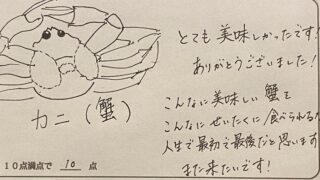 とても美味しかったです!
ありがとうございました!
こんなに美味しい蟹を
こんなにぜいたくに食べられる
人生で最初で最後だと思います
また来たいです!
カニ(蟹)
10点満点で 10 点